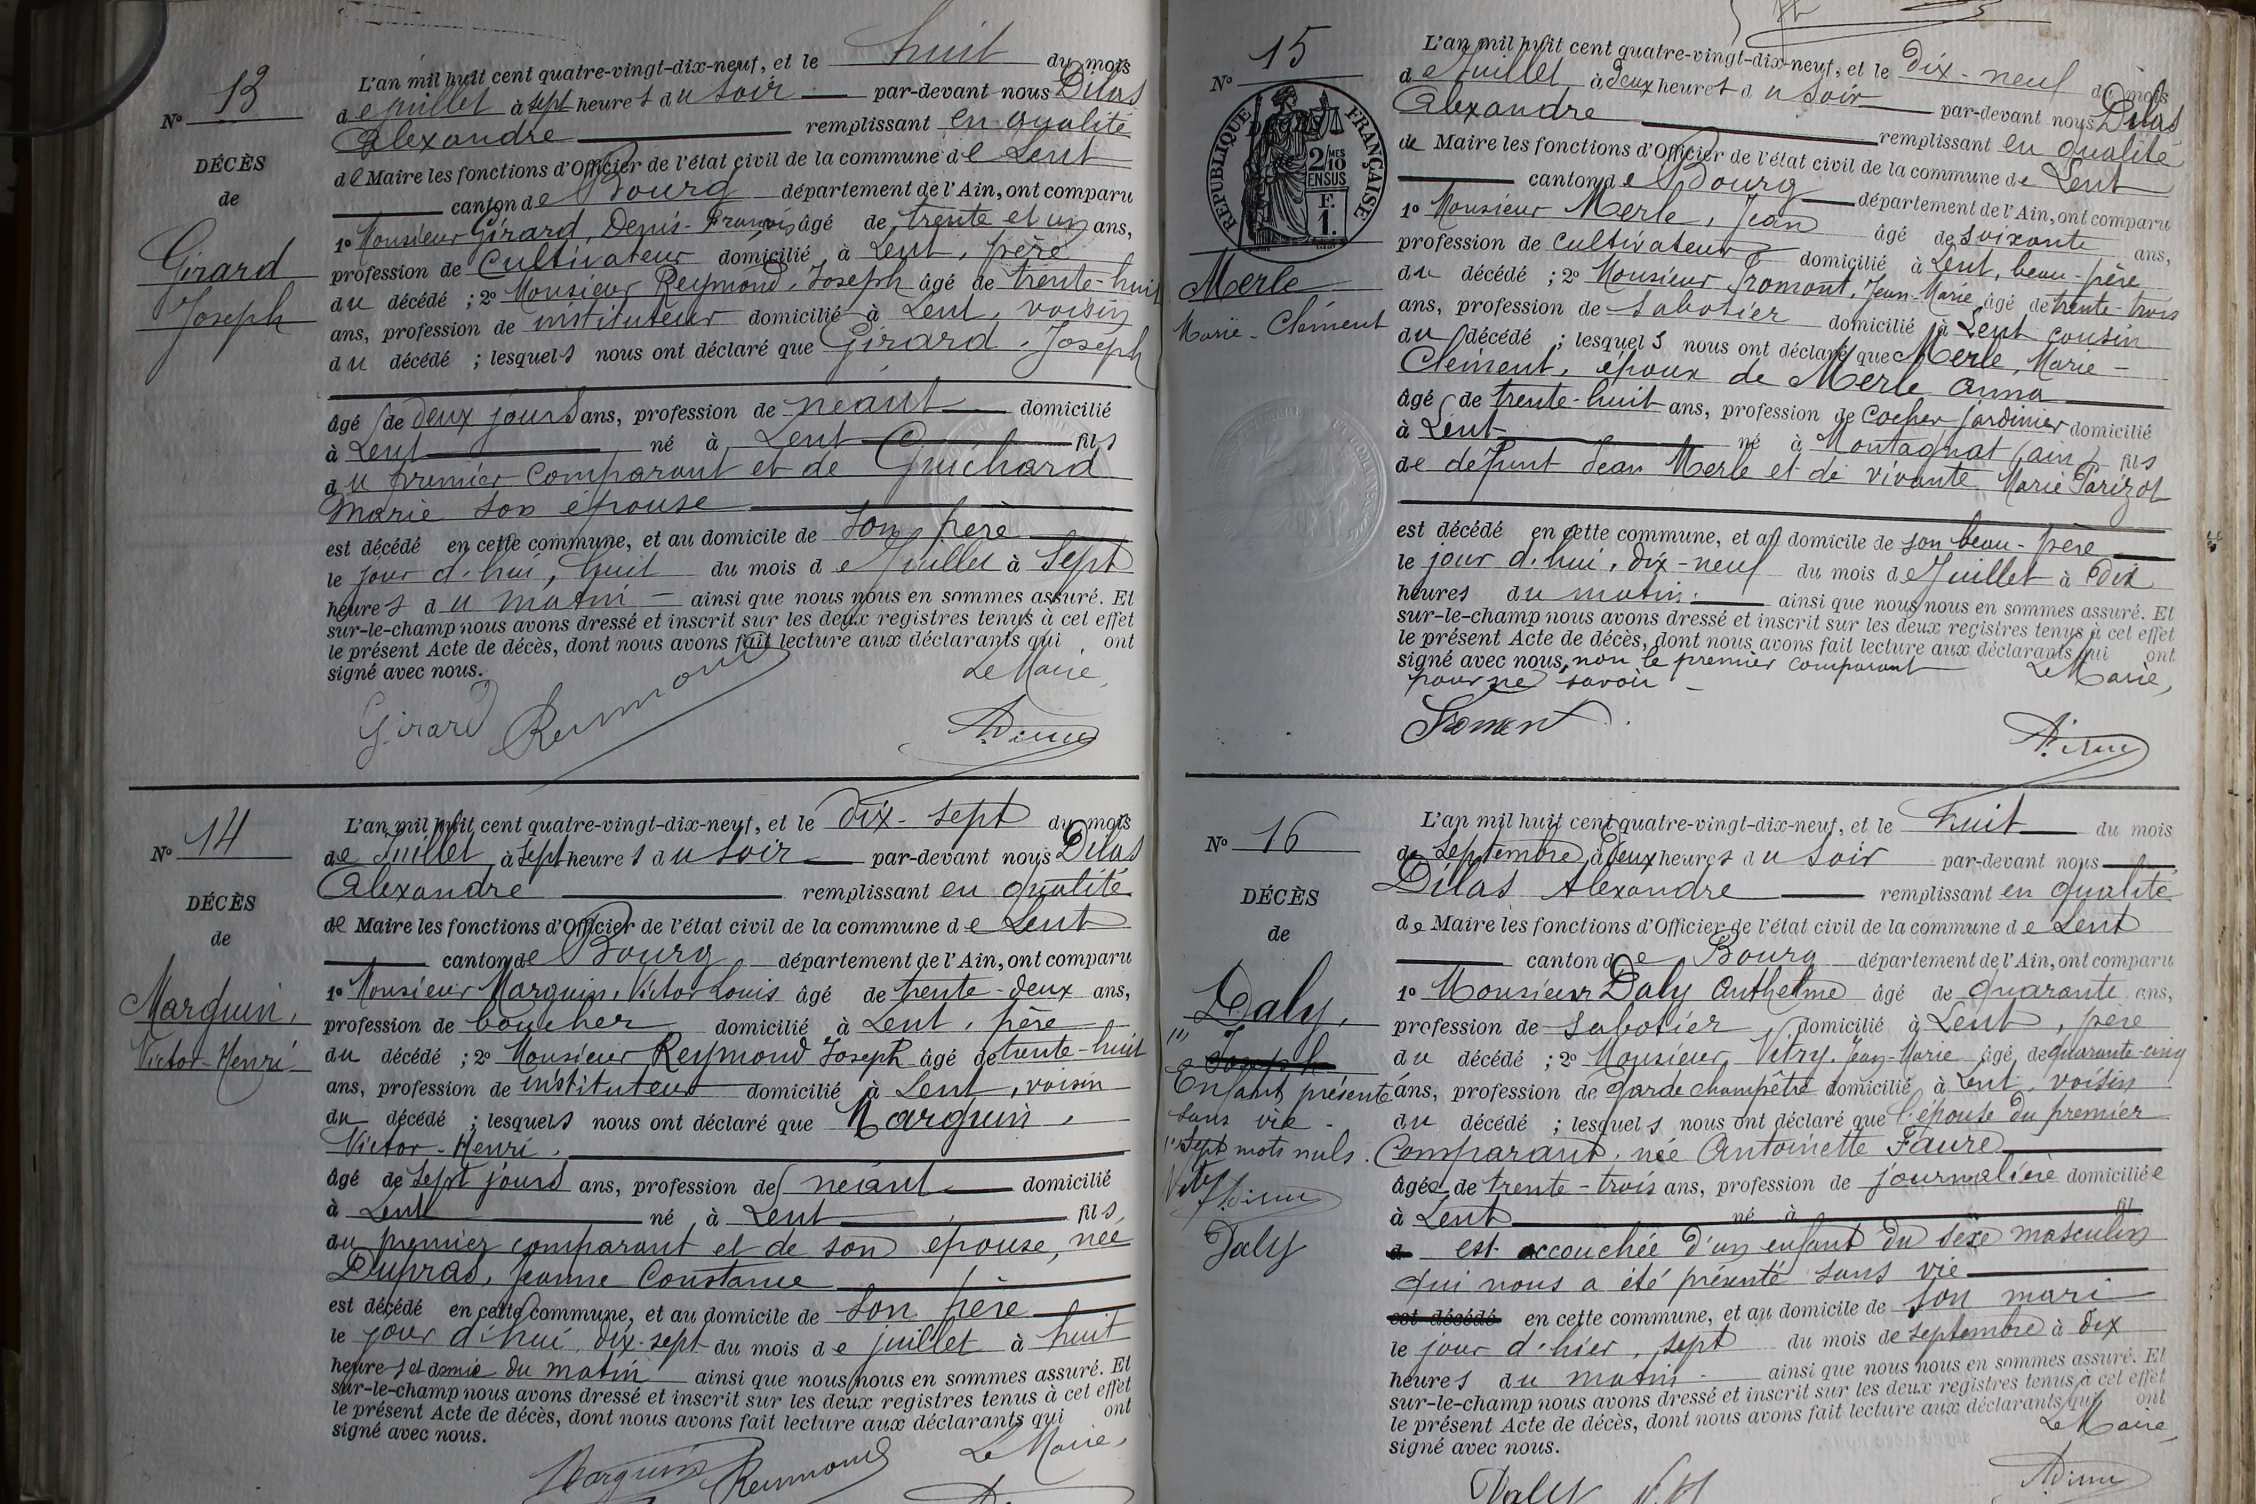 N° 13
DÉCÈS
de
Girard
Joseph
L'an mil huit cent quatre-vingt-dix-neuf, et le huit du mois
de juillet à sept heures du soir par-devant nous Dilas
Alexandre remplissant en qualité
de Maire les fonctions d'Officier de l'état civil de la commune de Lent
canton de Bourg département de l'Ain, ont comparu
1° Monsieur Girard, Denis-François âgé de trente et un ans,
profession de cultivateur domicilié à Lent, père
du décédé ; 2° Monsieur Reymond, Joseph âgé de trente-huit
ans, profession de instituteur domicilié à Lent, voisin
du décédé ; lesquels nous ont déclaré que Girard, Joseph
âgé de deux jours ans, profession de néant domicilié
à Lent né à Lent fils
du premier comparant et de Guichard
Marie son épouse
est décédé en cette commune, et au domicile de son père
le jour d'hui, huit du mois de Juillet à sept
heures du matin ainsi que nous nous en sommes assuré. Et
sur-le-champ nous avons dressé et inscrit sur les deux registres tenus à cet effet
le présent Acte de décès, dont nous avons fait lecture aux déclarants qui ont
signé avec nous.
Le Maire,
Girard Reymond
N° 14
DÉCÈS
de
Marguin,
Victor-Henri
L'an mil huit cent quatre-vingt-dix-neuf, et le dix-sept du mois
de Juillet à sept heures du soir par-devant nous Dilas
Alexandre remplissant en qualité
de Maire les fonctions d'Officier de l'état civil de la commune de Lent
canton de Bourg département de l'Ain, ont comparu
1° Monsieur Marguin, Victor Louis âgé de trente-deux ans,
profession de boucher domicilié à Lent, père
du décédé ; 2° Monsieur Reymond Joseph âgé de trente-huit
ans, profession de instituteur domicilié à Lent, voisin
du décédé ; lesquels nous ont déclaré que Marguin,
Victor-Henri,
âgé de sept jours ans, profession de néant domicilié
à Lent né à Lent fils
du premier comparant et de son épouse, née
Dupras, Jeanne Constance
est décédé en cette commune, et au domicile de son père
le jour d'hui, dix-sept du mois de juillet à huit
heures et demie du matin ainsi que nous nous en sommes assuré. Et
sur-le-champ nous avons dressé et inscrit sur les deux registres tenus à cet effet
le présent Acte de décès, dont nous avons fait lecture aux déclarants qui ont
signé avec nous.
Le Maire,
Marguin Reymond
N° 15
RÉPUBLIQUE FRANÇAISE
2/10MES
EN SUS
F.
1.
Merle
Marie-Clément
L'an mil huit cent quatre-vingt-dix-neuf, et le dix-neuf du mois
de Juillet à deux heures du soir par-devant nous Dilas
Alexandre remplissant en qualité
de Maire les fonctions d'Officier de l'état civil de la commune de Lent
canton de Bourg département de l'Ain, ont comparu
1° Monsieur Merle, Jean âgé de soixante ans,
profession de cultivateur domicilié à Lent, beau-père
du décédé ; 2° Monsieur Fromont, Jean-Marie âgé de trente-trois
ans, profession de sabotier domicilié à Lent cousin
du décédé ; lesquels nous ont déclaré que Merle, Marie-
Clément, époux de Merle Anna
âgé de trente-huit ans, profession de cocher jardinier domicilié
à Lent né à Montagnat (ain) fils
de défunt Jean Merle et de vivante Marie Parizot
est décédé en cette commune, et au domicile de son beau-père
le jour d'hui, dix-neuf du mois de Juillet à dix
heures du matin. ainsi que nous nous en sommes assuré. Et
sur-le-champ nous avons dressé et inscrit sur les deux registres tenus à cet effet
le présent Acte de décès, dont nous avons fait lecture aux déclarants qui ont
signé avec nous, non le premier comparant
pour ne savoir
Le Maire,
Fromont
N° 16
DÉCÈS
de
Daly,
(1) Joseph
Enfant présenté
sans vie
(1) Sept mots nuls.
Daly
L'an mil huit cent quatre-vingt-dix-neuf, et le huit du mois
de Septembre à deux heures du soir par-devant nous
Dilas Alexandre remplissant en qualité
de Maire les fonctions d'Officier de l'état civil de la commune de Lent
canton de Bourg département de l'Ain, ont comparu
1° Monsieur Daly Anthelme âgé de quarante ans,
profession de sabotier, domicilié à Lent, père
du décédé ; 2° Monsieur Vitry, Jean-Marie âgé de quarante-cinq
ans, profession de garde champêtre domicilié à Lent, voisin
du décédé ; lesquels nous ont déclaré que l'épouse du premier
comparant, née Antoinette Faure
âgée de trente-trois ans, profession de journalière domiciliée
à Lent né à fil
d est accouchée d'un enfant du sexe masculin
qui nous a été présenté sans vie
est décédé en cette commune, et au domicile de son mari
le jour d'hier, sept du mois de septembre à dix
heures du matin ainsi que nous nous en sommes assuré. Et
sur-le-champ nous avons dressé et inscrit sur les deux registres tenus à cet effet
le présent Acte de décès, dont nous avons fait lecture aux déclarants qui ont
signé avec nous.
Le Maire,
Daly